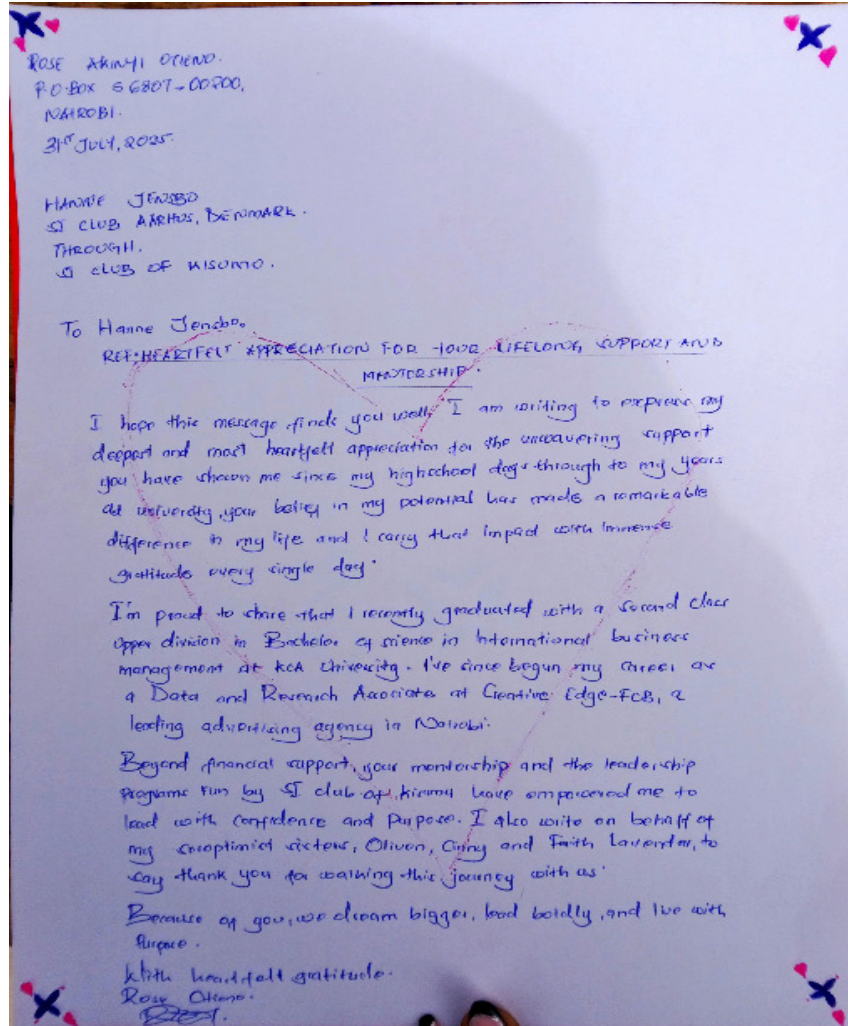 ROSE AKINYI OTIENO.
P.O BOX 56807-00200,
NAIROBI.
31ST JULY, 2025.
HANNE JENSBO
SI CLUB AARHUS, DENMARK.
THROUGH.
SI CLUB OF KISUMU.
To Hanne Jensbo.
REF: HEARTFELT APPRECIATION FOR YOUR LIFELONG SUPPORT AND
MENTORSHIP.
I hope this message finds you well. I am writing to express my
deepest and most heartfelt appreciation for the unwavering support
you have shown me since my highschool days through to my years
at university, your belief in my potential has made a remarkable
difference in my life and I carry that impact with immense
gratitude every single day.
I'm proud to share that I recently graduated with a second class
upper division in Bachelor of science in International business
management at KCA University. I've since begun my career as
a Data and Research Associate at Creative Edge-FCB, a
leading advertising agency in Nairobi.
Beyond financial support, your mentorship and the leadership
programs run by SI club of Kisumu have empowered me to
lead with confidence and Purpose. I also write on behalf of
my soroptimist sisters, Oliven, and Faith Lavender, to
say thank you for walking this journey with us.
Because of you, we dream bigger, lead boldly, and live with
Purpose.
With heartfelt gratitude.
Rose Otieno.